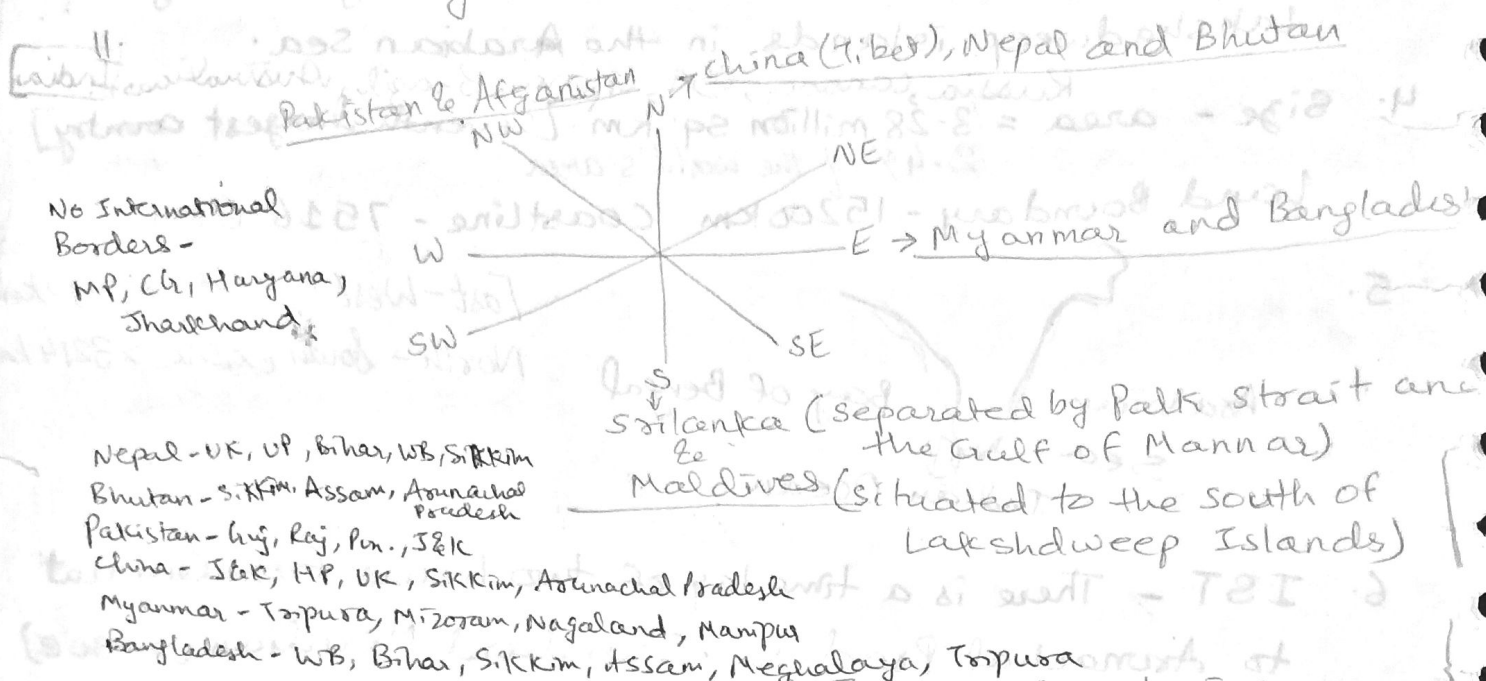 11.
China (Tibet), Nepal and Bhutan
Pakistan & Afganistan
N
NW
NE
No International
Borders -
MP, CG, Haryana,
Jharkhand
W
E → Myanmar and Banglades
SW
SE
S
Srilanka (separated by Palk Strait and
& the Gulf of Mannar)
Maldives (situated to the south of
Lakshdweep Islands)
Nepal - UK, UP, Bihar, WB, Sikkim
Bhutan - Sikkim, Assam, Arunachal
Pradesh
Pakistan - Guj, Raj, Pun., J&K
China - J&K, HP, UK, Sikkim, Arunachal Pradesh
Myanmar - Tripura, Mizoram, Nagaland, Manipur
Bangladesh - WB, Bihar, Sikkim, Assam, Meghalaya, Tripura